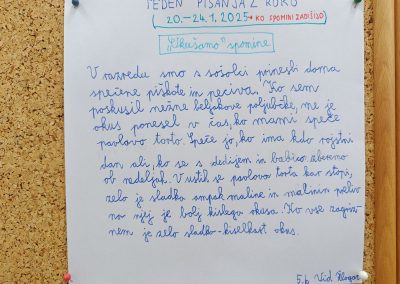 TEDEN PISANJA Z ROKO
(20.–24.1.2025 → KO SPOMINI ZADIŠIJO)
"Skušamo" spomine
V razredu smo s sošolci prinesli doma
spečene piškote in peciva. Ko sem
poskusil nežne beljakove poljubčke, me je
okus ponesel v čas, ko mami speče
pavlovo torto. Speče jo, ko ima kdo rojstni
dan ali, ko se z dedijem in babico zberemo
ob nedeljah. V ustih se pavlova torta kar stopi,
zelo je sladka ampak maline in malinin preliv
na njej je bolj kislega okusa. Ko vse zagrizem
nem je zelo sladko-kiselkast okus.
5.b Vid